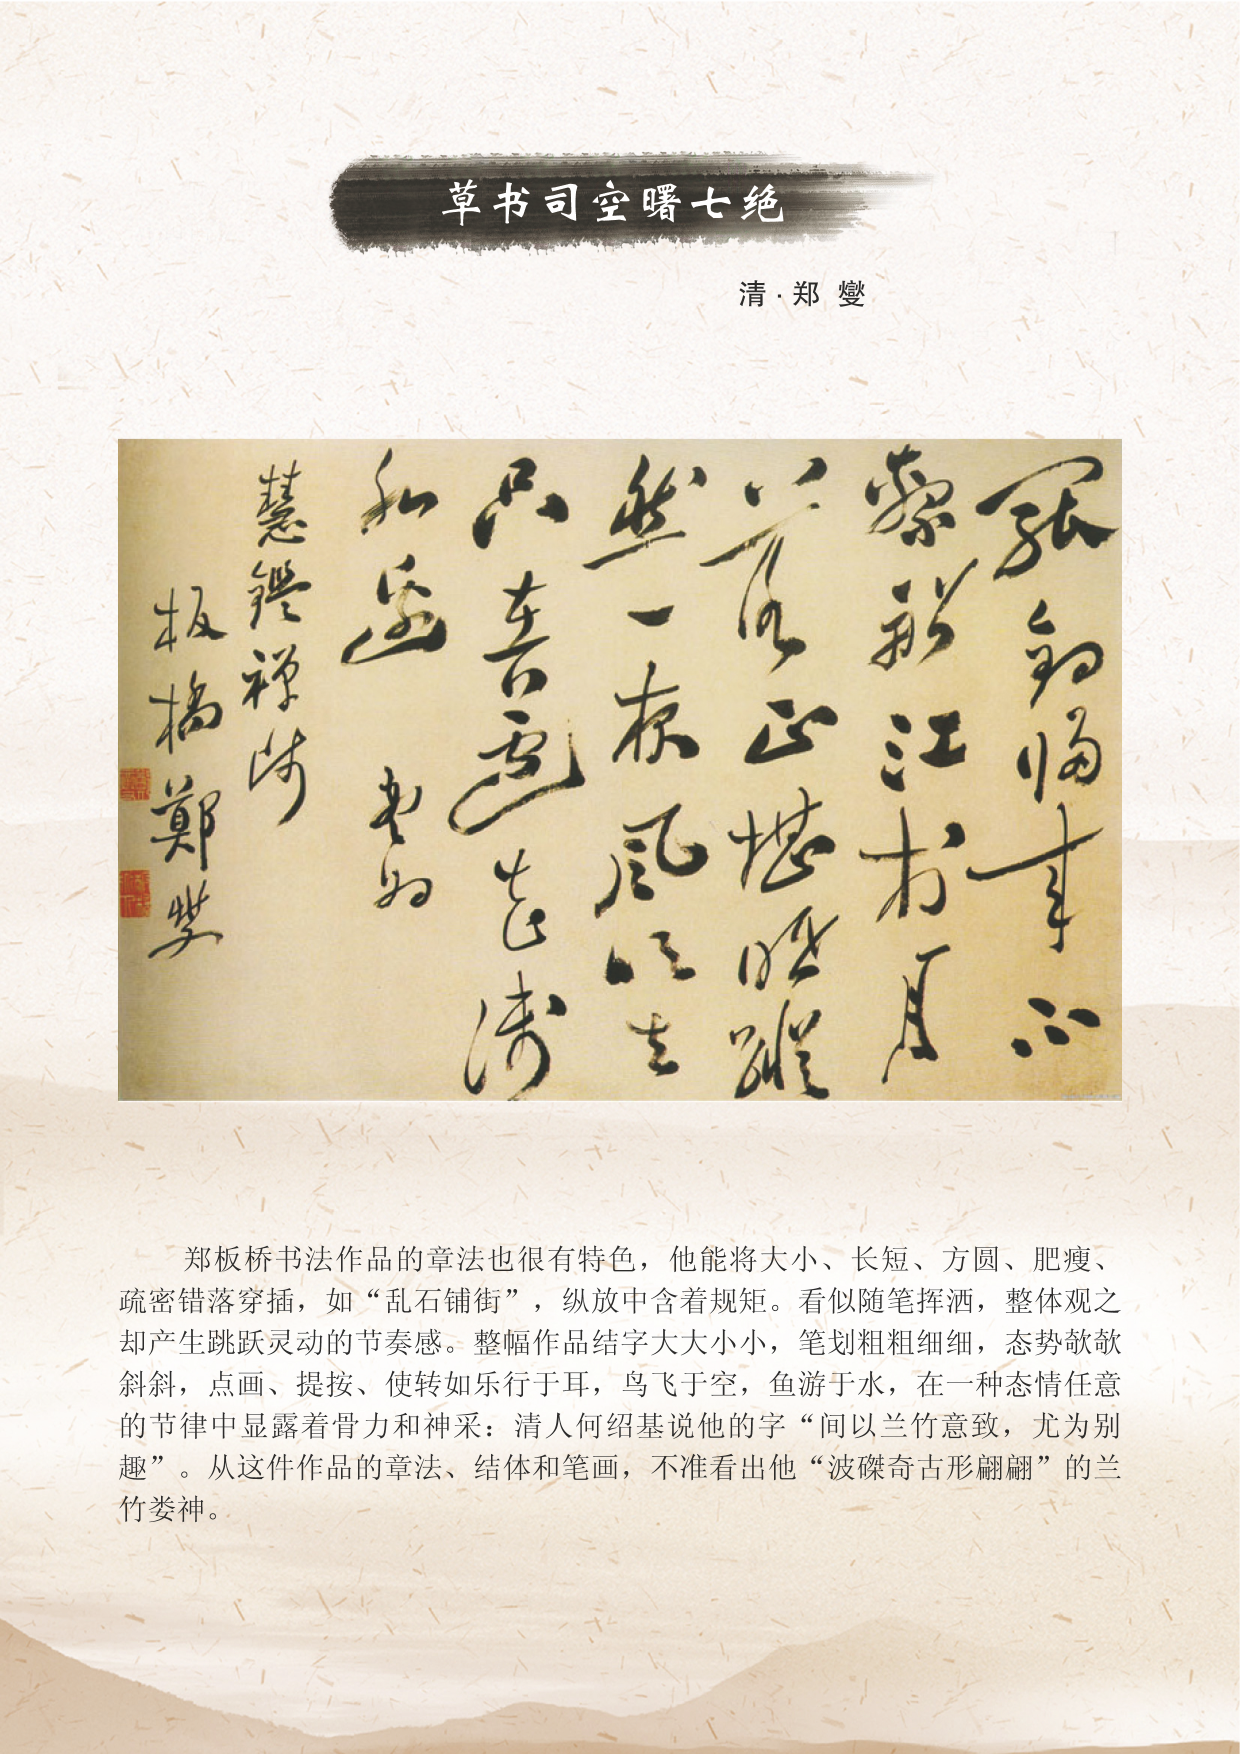 草书司空曙七绝
清·郑 燮
罷釣歸來不
繫船江村月
落正堪眠縱
然一夜風吹去
只在蘆花淺
水邊 書為
慧鑑禅师
板橋鄭燮
郑板桥书法作品的章法也很有特色，他能将大小、长短、方圆、肥瘦、
疏密错落穿插，如“乱石铺街”，纵放中含着规矩。看似随笔挥洒，整体观之
却产生跳跃灵动的节奏感。整幅作品结字大大小小，笔划粗粗细细，态势欹欹
斜斜，点画、提按、使转如乐行于耳，鸟飞于空，鱼游于水，在一种态情任意
的节律中显露着骨力和神采：清人何绍基说他的字“间以兰竹意致，尤为别
趣”。从这件作品的章法、结体和笔画，不准看出他“波磔奇古形翩翩”的兰
竹娄神。